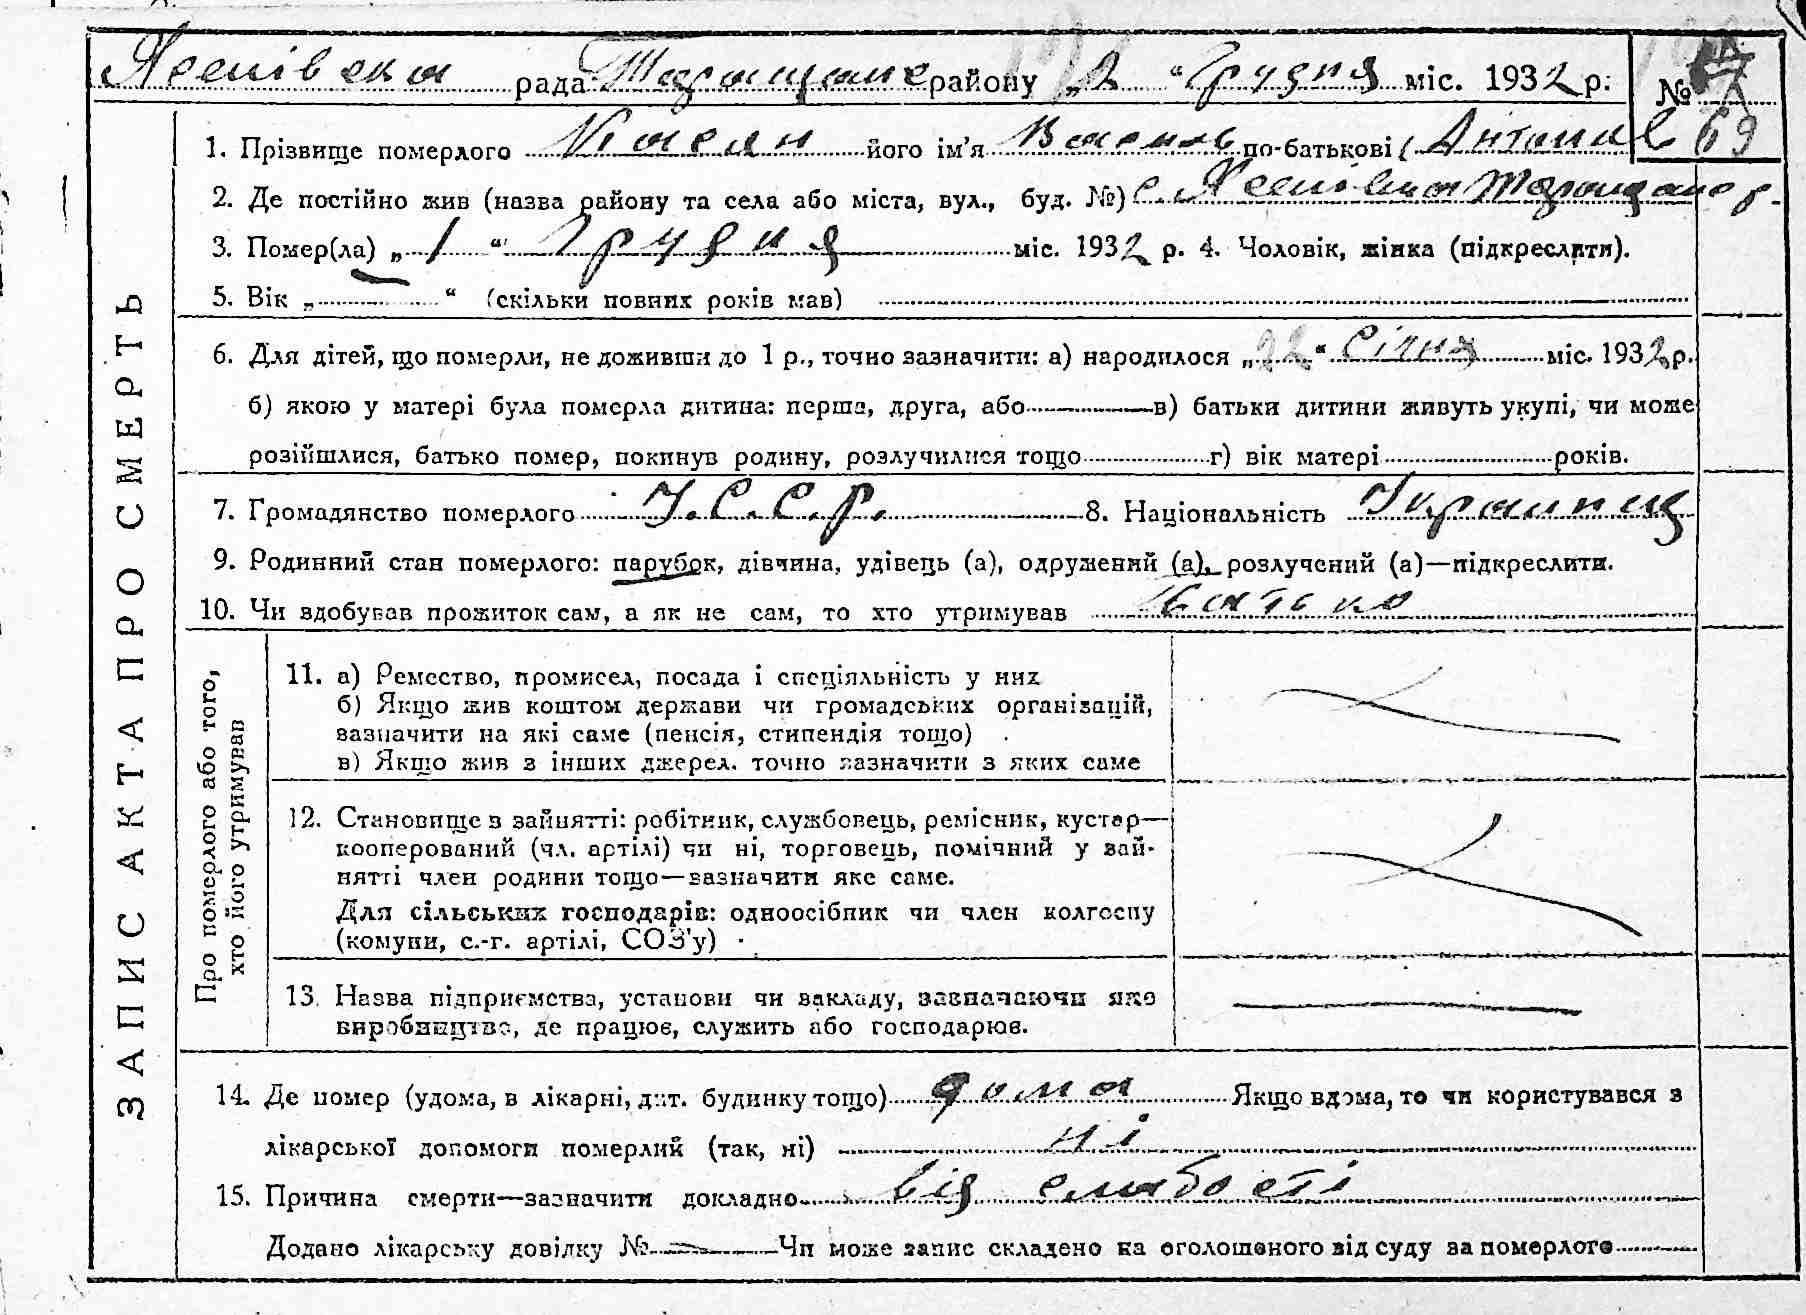 Ясенівська рада Таращанс району „2“ Грудня міс. 1932 р. №
69
1. Прізвище померлого його ім'я Василь по-батькові Антонів
2. Де постійно жив (назва району та села або міста, вул., буд. №) с. Ясенівка Таращанс р.
3. Помер(ла) „1“ Грудня міс. 1932 р. 4. Чоловік, жінка (підкреслити).
5. Вік „—“ (скільки повних років мав)
6. Для дітей, що померли, не доживши до 1 р., точно зазначити: а) народилося „22“ Січня міс. 1932 р.
б) якою у матері була померла дитина: перша, друга, або в) батьки дитини живуть укупі, чи може
розійшлися, батько помер, покинув родину, розлучилися тощо г) вік матері років.
7. Громадянство померлого У.С.С.Р. 8. Національність Українец
9. Родинний стан померлого: парубок, дівчина, удівець (а), одружений (а), розлучений (а)—підкреслити.
10. Чи здобував прожиток сам, а як не сам, то хто утримував батько
ЗАПИС АКТА ПРО СМЕРТЬ
Про померлого або того,
хто його утримував
11. а) Ремество, промисел, посада і спеціяльність у них
б) Якщо жив коштом держави чи громадських організацій,
зазначити на які саме (пенсія, стипендія тощо)
в) Якщо жив з інших джерел. точно зазначити з яких саме
12. Становище в зайнятті: робітник, службовець, ремісник, кустар—
кооперований (чл. артілі) чи ні, торговець, помічний у зай-
нятті член родини тощо—зазначити яке саме.
Для сільських господарів: одноосібник чи член колгоспу
(комуни, с.-г. артілі, СОЗ'у)
13. Назва підприємства, установи чи закладу, зазначаючи яке
виробництво, де працює, служить або господарює.
14. Де помер (удома, в лікарні, дит. будинку тощо) дома Якщо вдома, то чи користувався з
лікарської допомоги померлий (так, ні) ні
15. Причина смерти—зазначити докладно від слабості
Додано лікарську довідку № — Чи може запис складено на оголошеного від суду за померлого